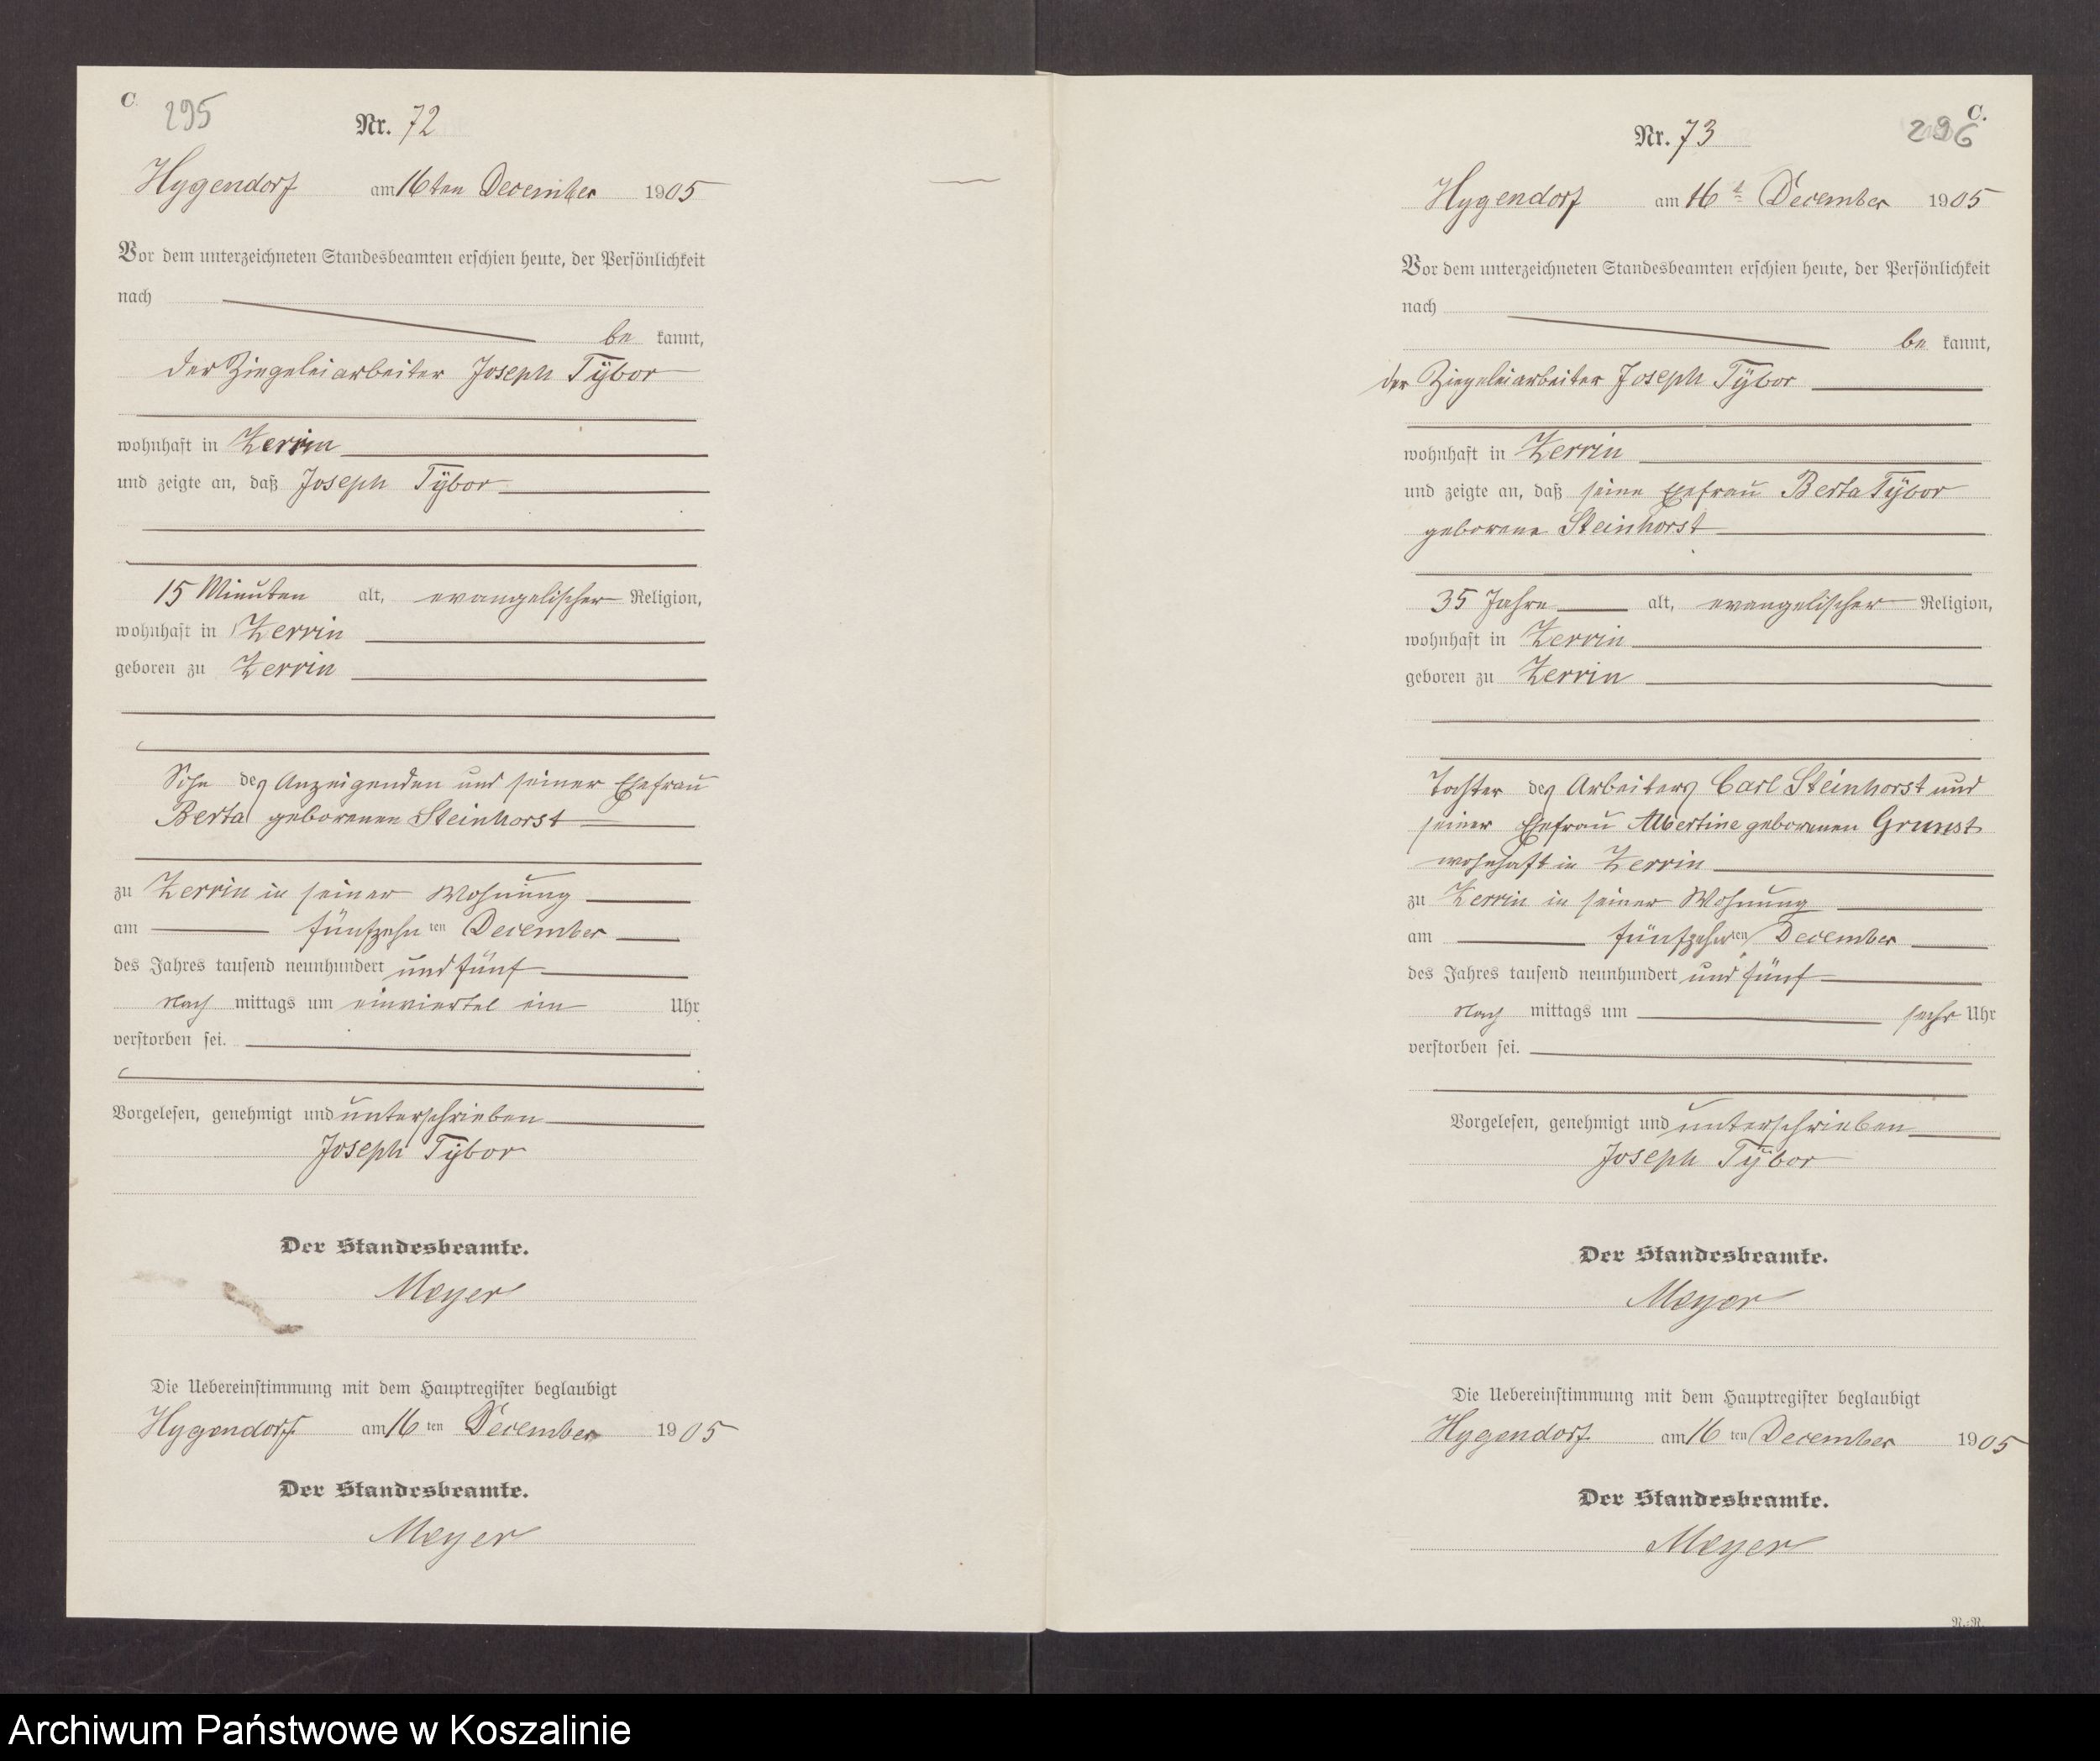 C.
295
Nr. 72
Hygendorf am 16ten December 1905
Vor dem unterzeichneten Standesbeamten erschien heute, der Persönlichkeit
nach
be kannt,
der Ziegeleiarbeiter Joseph Tybor
wohnhaft in Zerrin
und zeigte an, daß Joseph Tybor
15 Minuten alt, evangelischer Religion,
wohnhaft in Zerrin
geboren zu Zerrin
Sohn des Anzeigenden und seiner Ehefrau
Berta geborenen Steinhorst
zu Zerrin in seiner Wohnung
am fünfzehnten December
des Jahres tausend neunhundert und fünf
Nach mittags um einviertel ein Uhr
verstorben sei.
Vorgelesen, genehmigt und unterschrieben
Joseph Tybor
Der Standesbeamte.
Meyer
Die Uebereinstimmung mit dem Hauptregister beglaubigt
Hygendorf am 16 ten December 1905
Der Standesbeamte.
Meyer
C.
296
Nr. 73
Hygendorf am 16t December 1905
Vor dem unterzeichneten Standesbeamten erschien heute, der Persönlichkeit
nach
be kannt,
der Ziegeleiarbeiter Joseph Tybor
wohnhaft in Zerrin
und zeigte an, daß seine Ehefrau Berta Tybor
geborene Steinhorst
35 Jahre alt, evangelischer Religion,
wohnhaft in Zerrin
geboren zu Zerrin
Tochter des Arbeiters Carl Steinhorst und
seiner Ehefrau Albertine geborenen Grunst
wohnhaft in Zerrin
zu Zerrin in seiner Wohnung
am fünfzehnten December
des Jahres tausend neunhundert und fünf
Nach mittags um sechs Uhr
verstorben sei.
Vorgelesen, genehmigt und unterschrieben
Joseph Tybor
Der Standesbeamte.
Meyer
Die Uebereinstimmung mit dem Hauptregister beglaubigt
Hygendorf am 16 ten December 1905
Der Standesbeamte.
Meyer
Archiwum Państwowe w Koszalinie